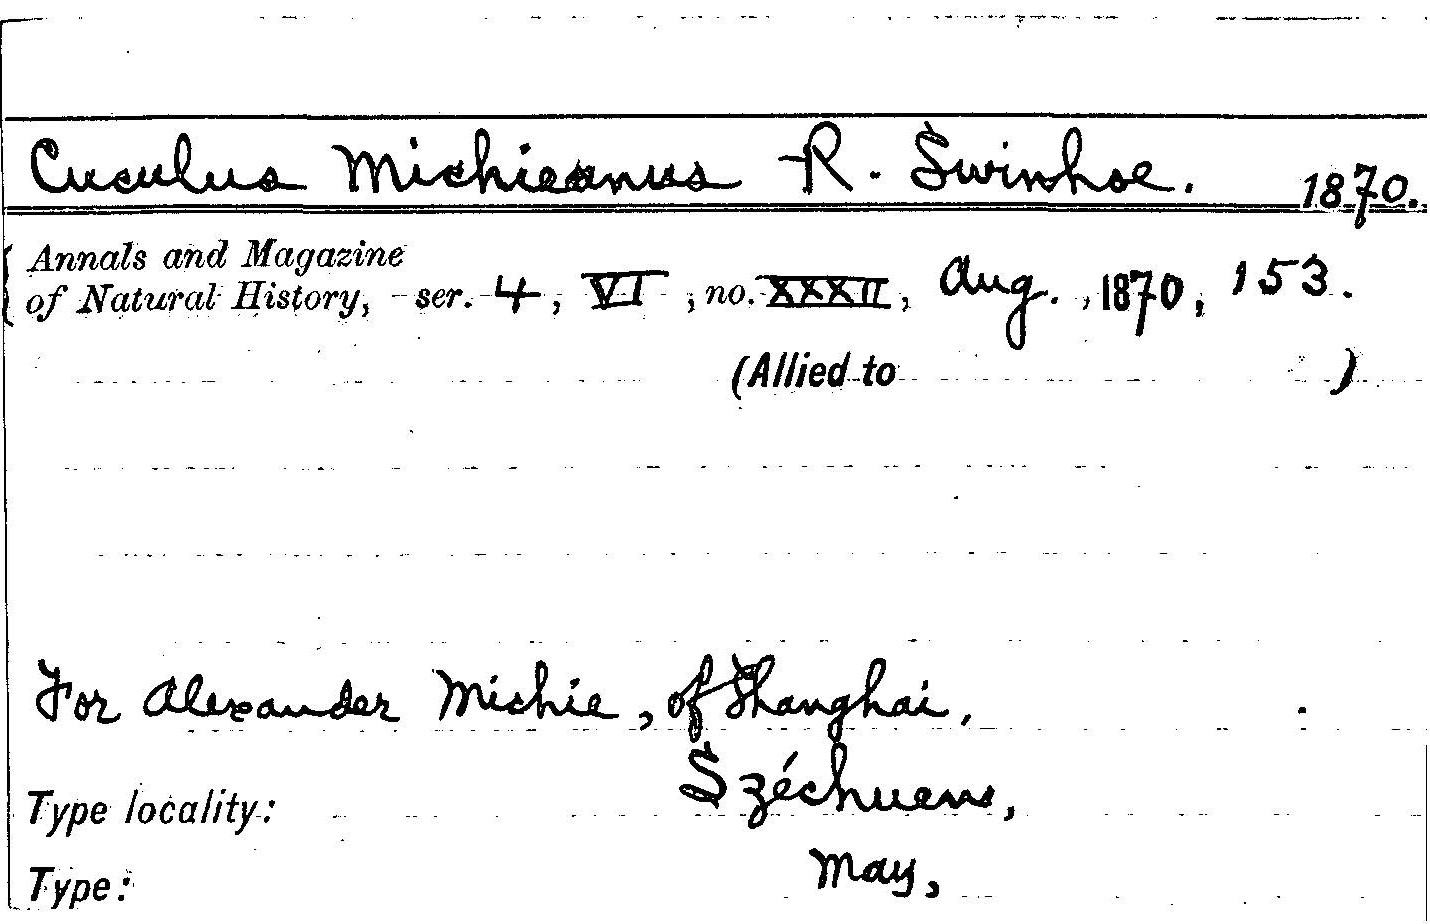 Cuculus Michieanus R. Swinhoe. 1870.
Annals and Magazine
of Natural History, ser. 4, VI, no. XXXII, Aug., 1870, 153.
(Allied to )
For Alexander Michie, of Shanghai,
Széchuen,
Type locality:
May,
Type: